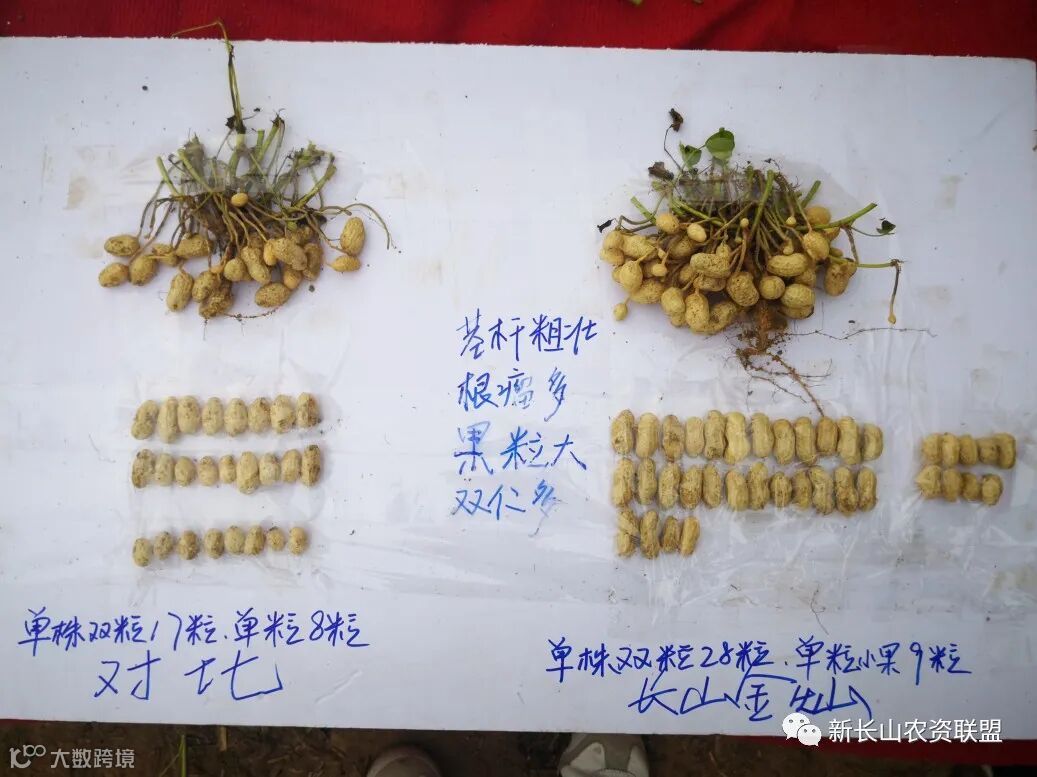 茎杆粗壮
根瘤多
果粒大
双仁多
单株双粒17粒、单粒8粒
对比
单株双粒28粒、单粒小果9粒
长山金灿灿
新长山农资联盟
大数跨境